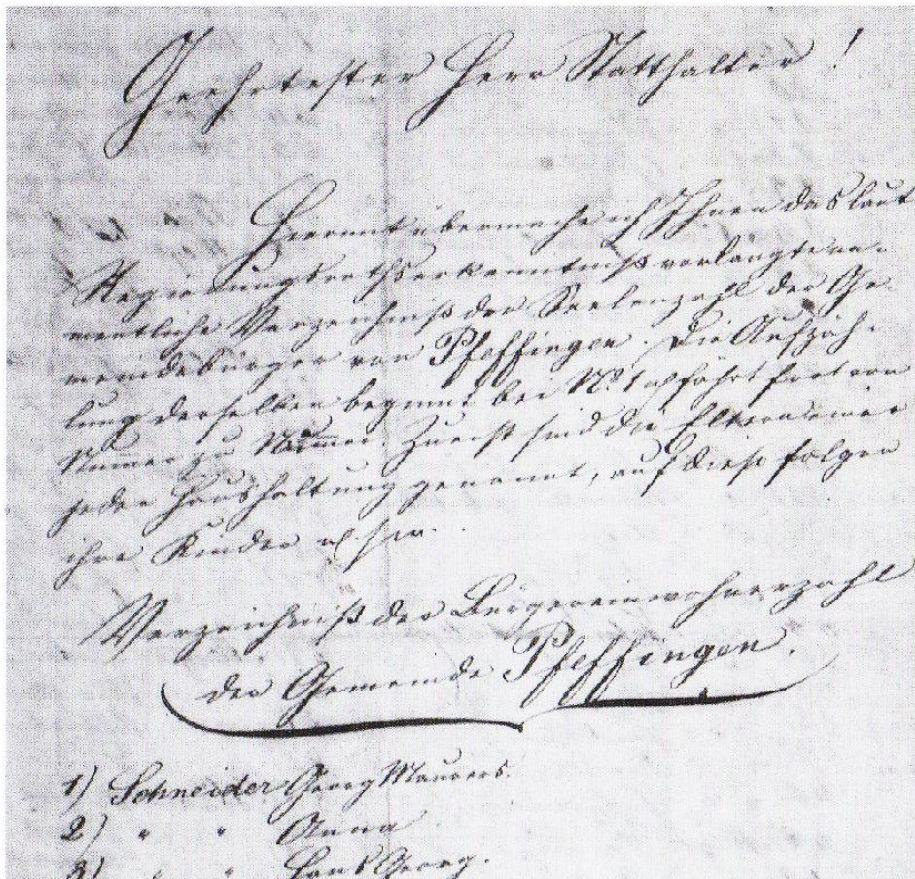 Geehrtester Herr Statthalter!
Hiermit übermache ich Ihnen das laut
Regierungsrathserkenntniß verlangte na-
mentliche Verzeichniß der Seelenzahl der Ge-
meindebürger von Pfeffingen. Die Aufzäh-
lung derselben beginnt bei No 1 u fährt fort von
Num̅er zu Num̅er. Zuerst sind die Eltern einer
jeden Haushaltung genannt, auf diese folgen
ihre Kinder u.s.w.
Verzeichniß der Bürgereinwohnerzahl
der Gemeinde Pfeffingen.
1) Schneider Georg Maurers.
2) " " Anna
3) " " Hans Georg.